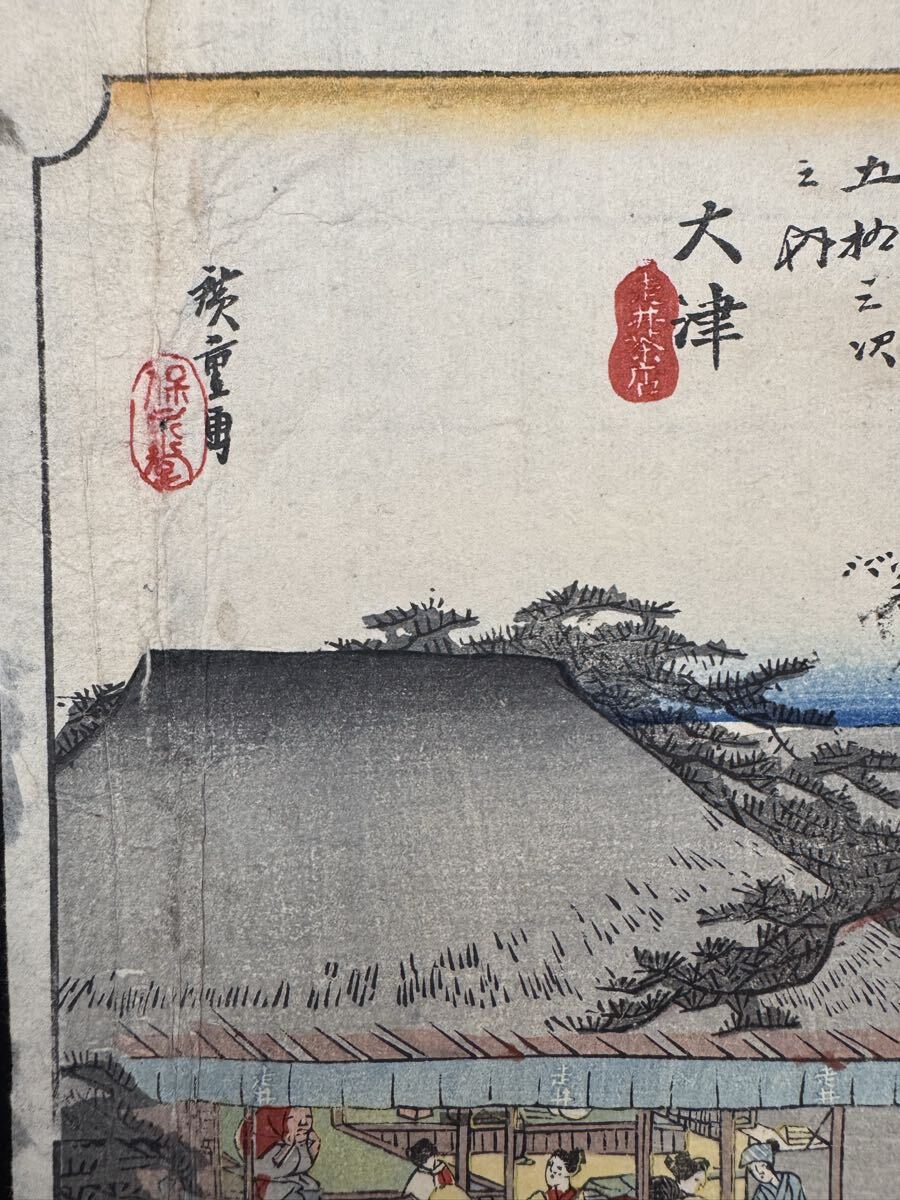 五拾三次
之内
大津
走井茶店
廣重画
保永堂
走井
走井
走井